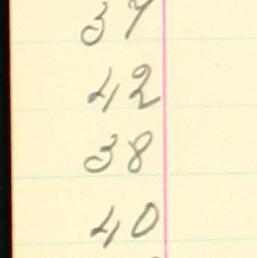 37
42
38
40